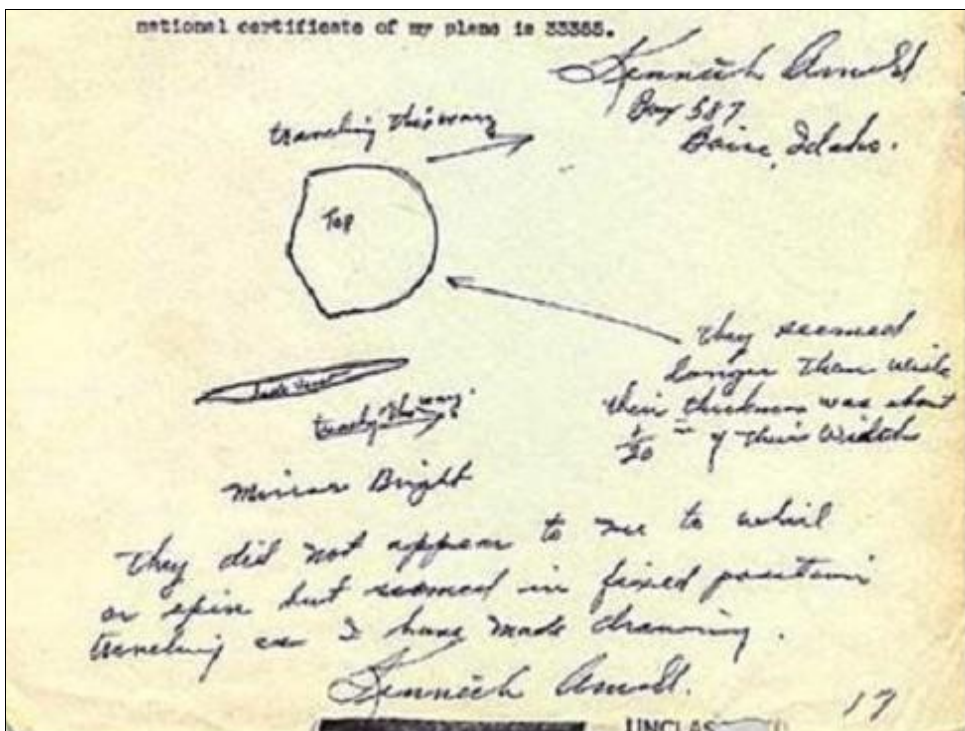 national certificate of my plane is 33355.
Kenneth Arnold
Box 587
Boise, Idaho.
traveling this way
Top
they seemed
longer than wide
their thickness was about
1/20 th of their width
side view
traveling this way.
Mirror Bright
they did not appear to me to whirl
or spin but seemed in fixed position
traveling as I have made drawing.
Kenneth Arnold.
17
UNCLAS